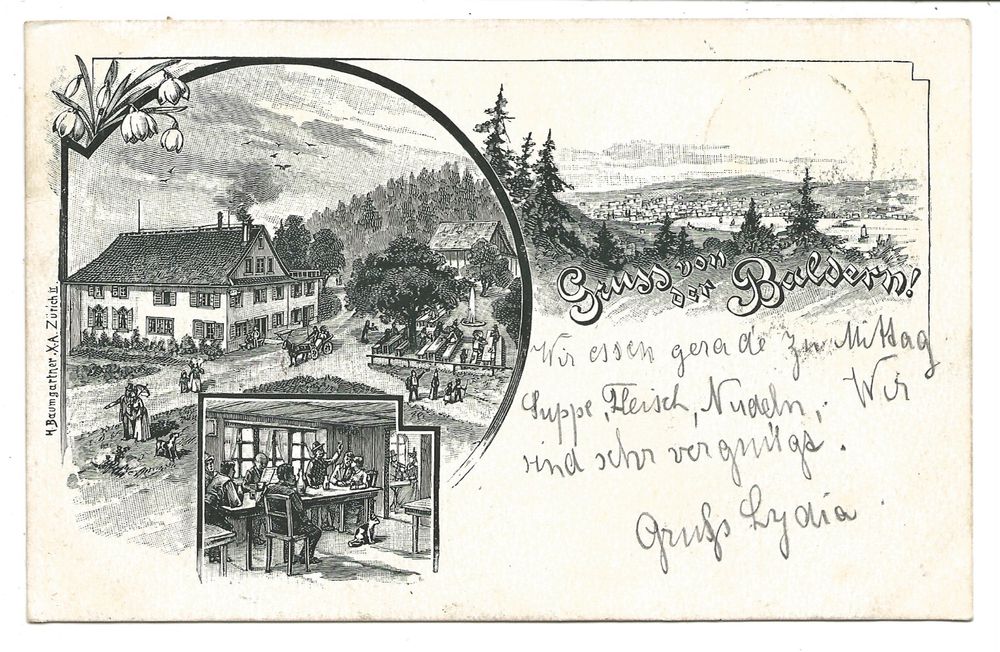 Gruss von
der Baldern!
Wir essen gerade zu Mittag
Suppe, Fleisch, Nudeln, Wir
sind sehr vergnügt.
Gruß Lydia
H. Baumgartner. X.A. Zürich II.